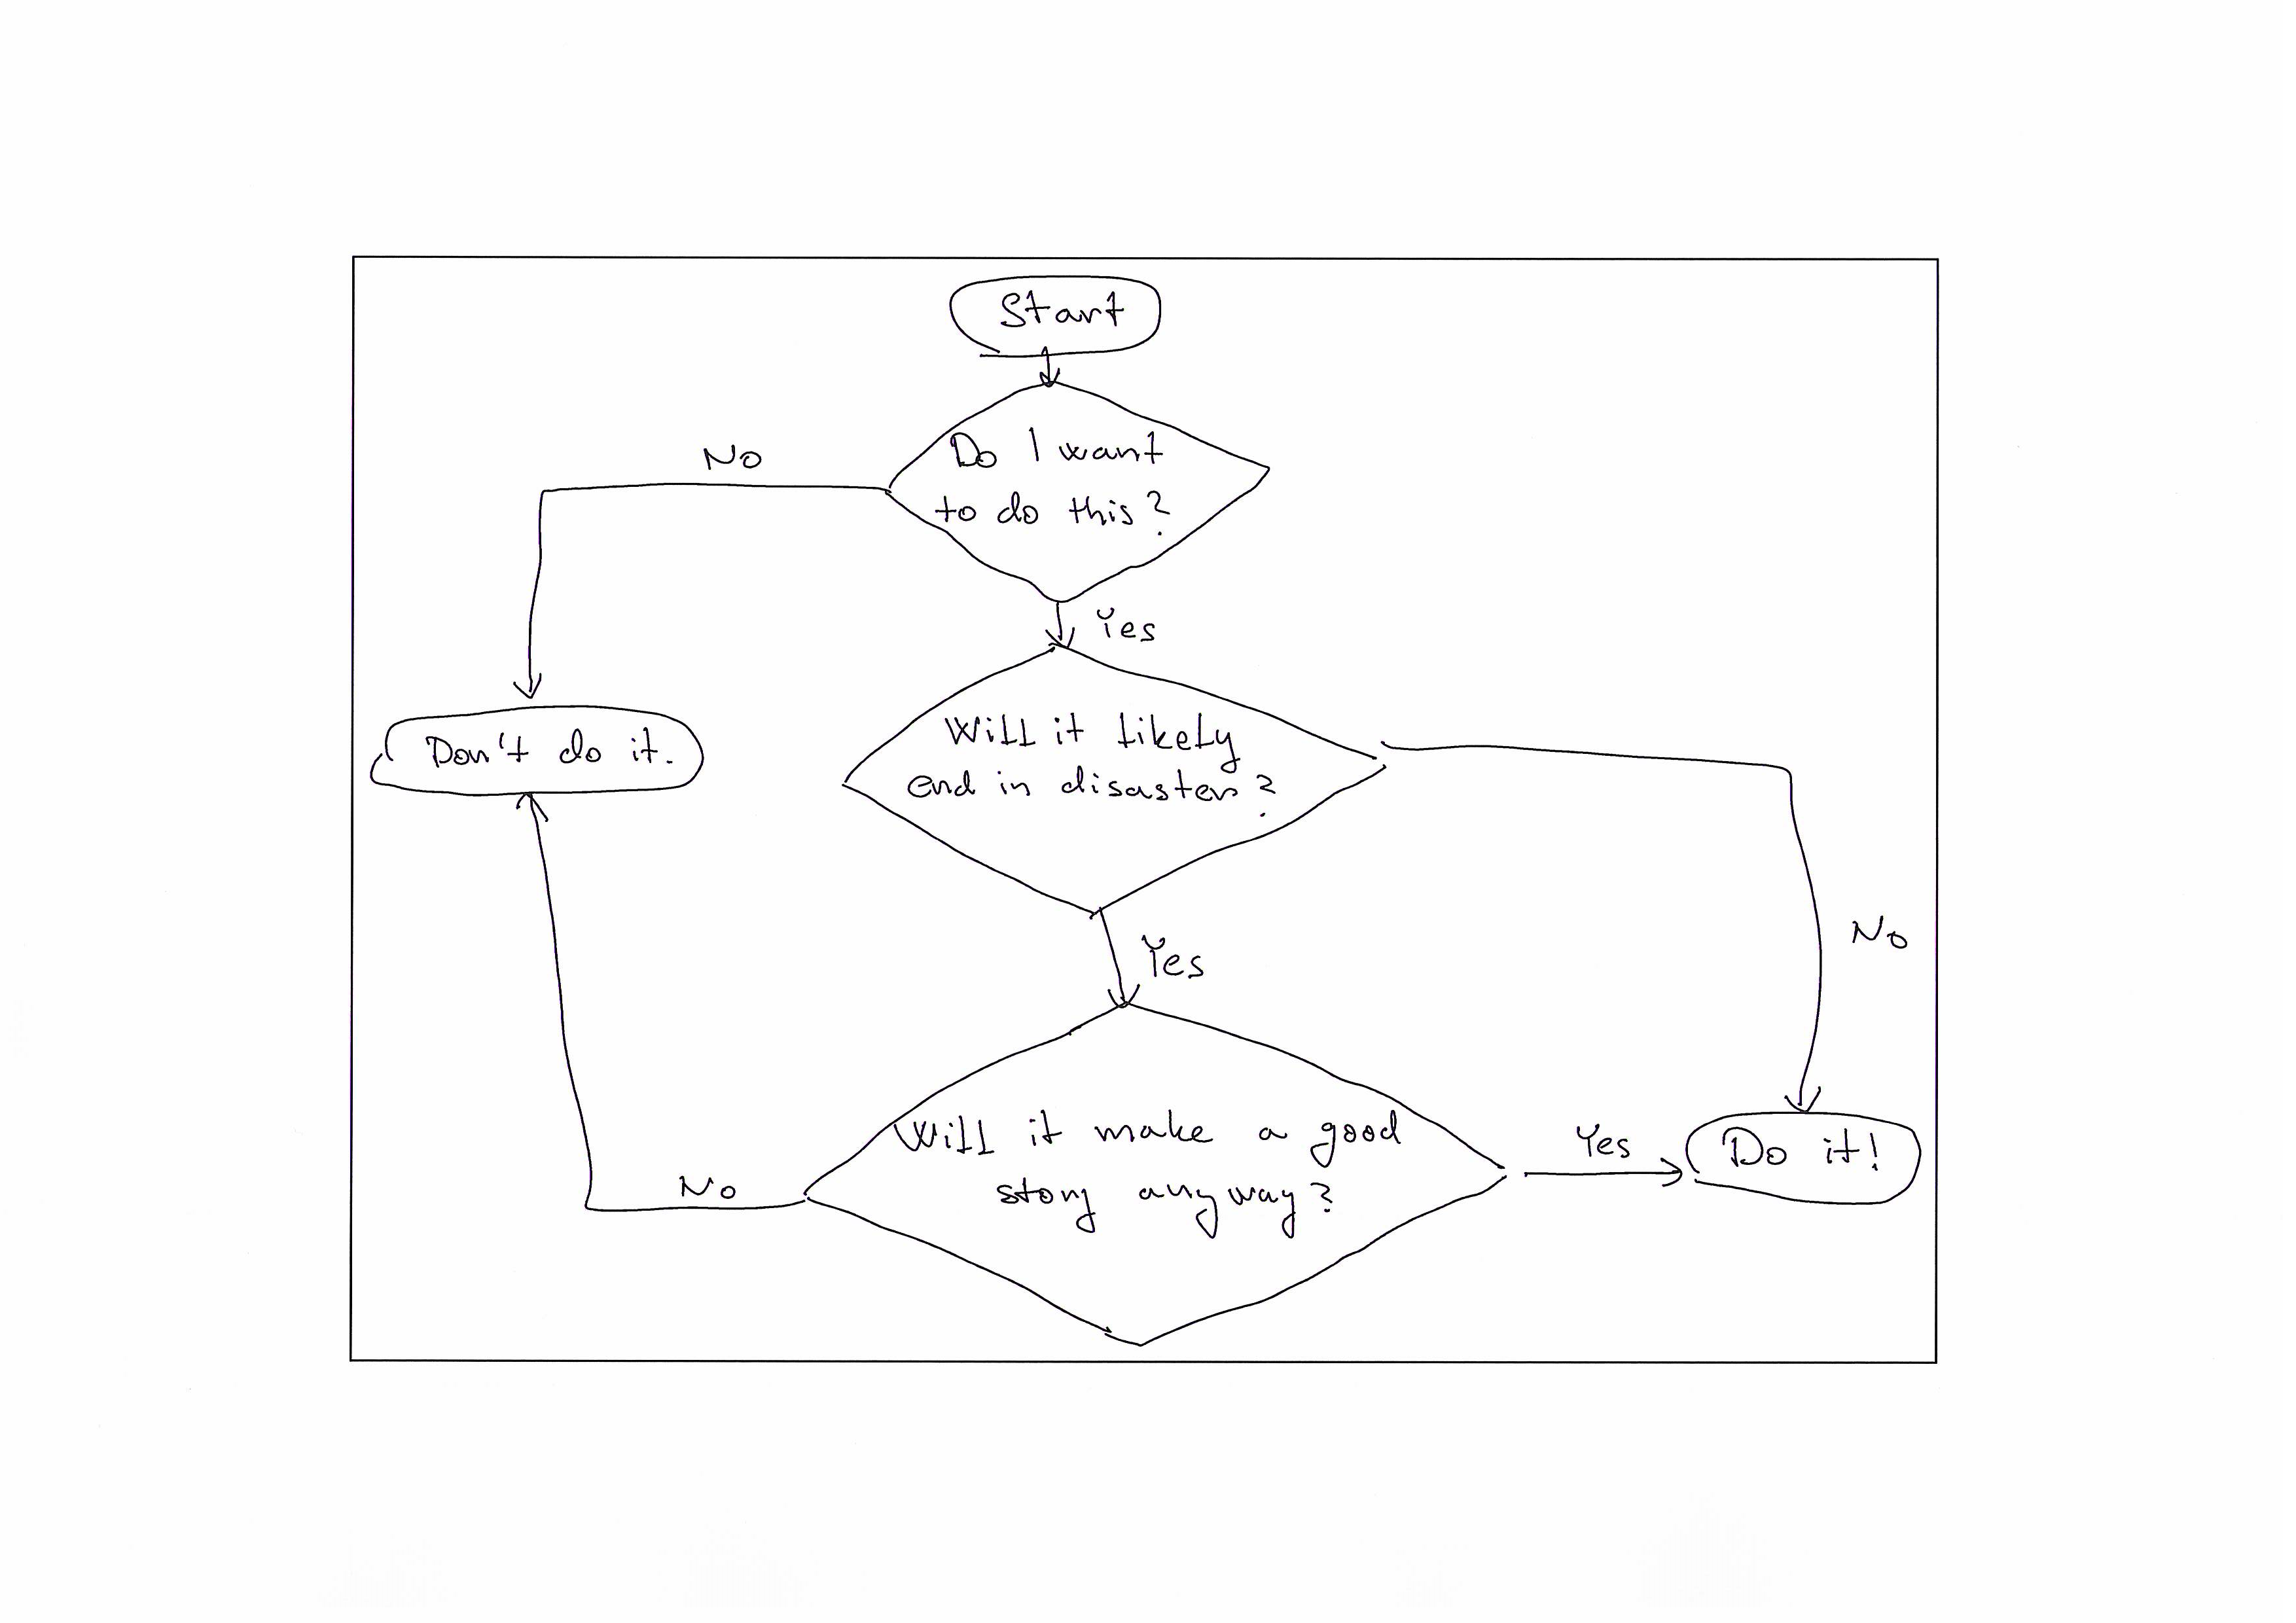 Start
Do I want
to do this?
No
Yes
Don't do it.
Will it likely
end in disaster?
No
Yes
Will it make a good
story anyway?
No
Yes
Do it!